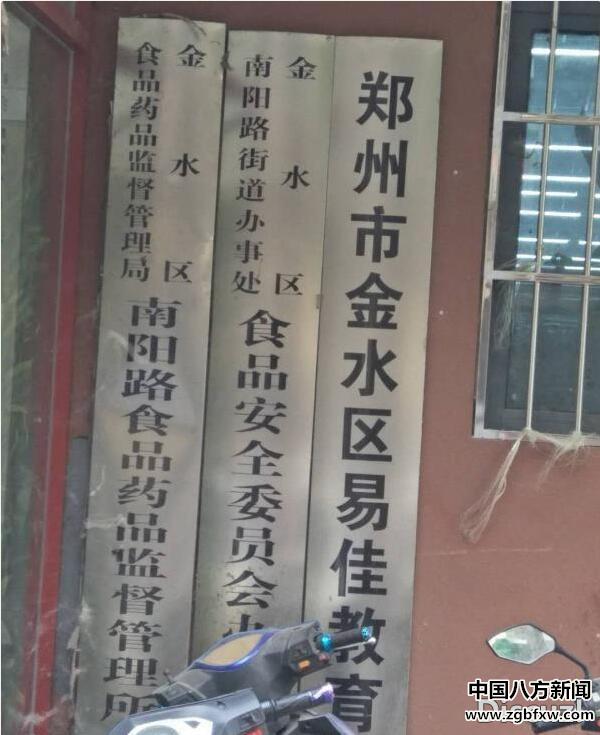 郑州市金水区易佳教育
金水区
南阳路街道办事处
食品安全委员会办
金水区
食品药品监督管理局
南阳路食品药品监督管理所
中国八方新闻
www.zgbfxw.com